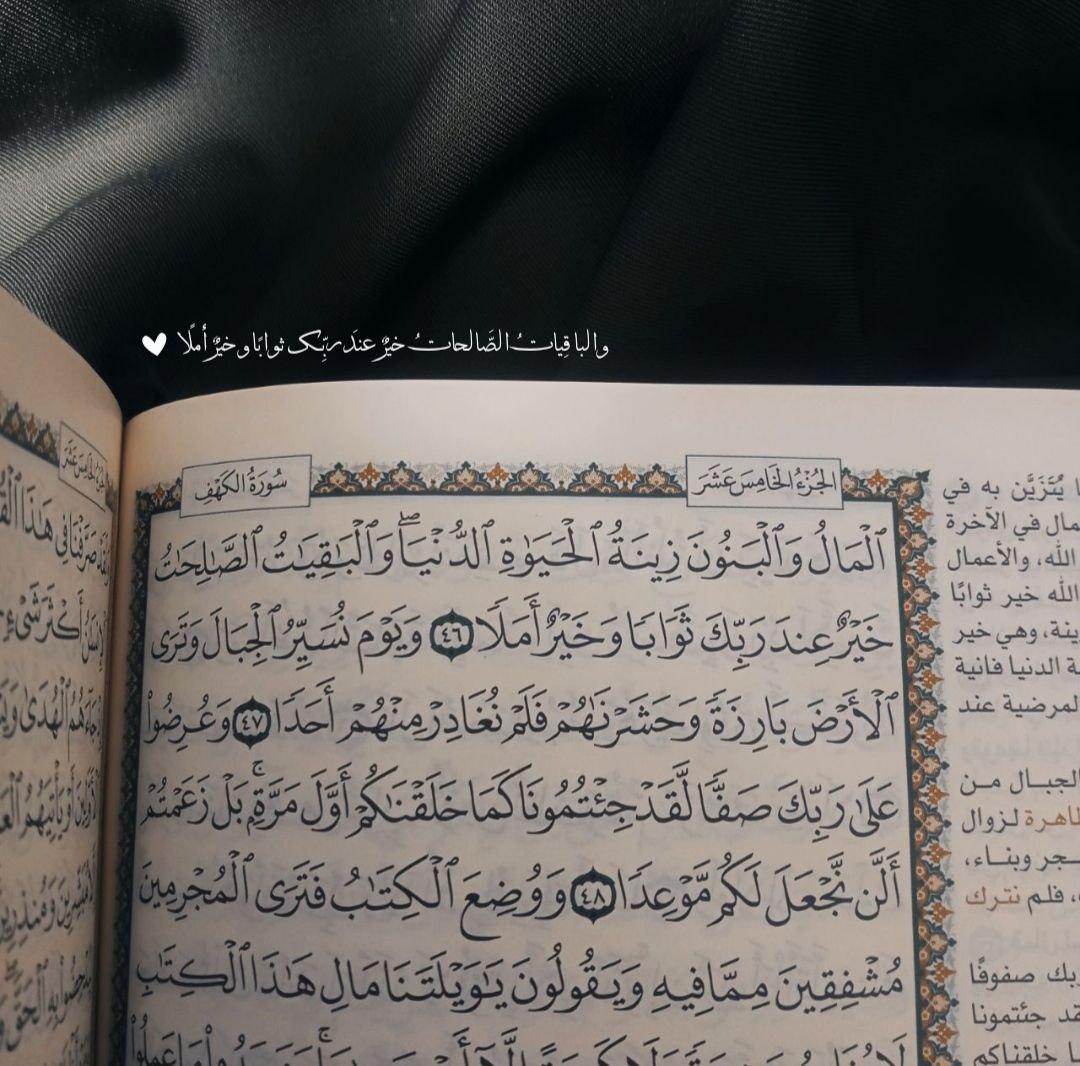 والباقيات الصَّالحاتُ خيرٌ عندَ ربِّك ثوابًا وخيرٌ أملًا
سُورَةُ الكَهْفِ
الجُزْءُ الخَامِسَ عَشَرَ
ٱلْمَالُ وَٱلْبَنُونَ زِينَةُ ٱلْحَيَوٰةِ ٱلدُّنْيَاۖ وَٱلْبَٰقِيَٰتُ ٱلصَّٰلِحَٰتُ
خَيْرٌ عِندَ رَبِّكَ ثَوَابًا وَخَيْرٌ أَمَلًا ٤٦ وَيَوْمَ نُسَيِّرُ ٱلْجِبَالَ وَتَرَى
ٱلْأَرْضَ بَارِزَةً وَحَشَرْنَٰهُمْ فَلَمْ نُغَادِرْ مِنْهُمْ أَحَدًا ٤٧ وَعُرِضُوا۟
عَلَىٰ رَبِّكَ صَفًّا لَّقَدْ جِئْتُمُونَا كَمَا خَلَقْنَٰكُمْ أَوَّلَ مَرَّةٍۭۚ بَلْ زَعَمْتُمْ
أَلَّن نَّجْعَلَ لَكُم مَّوْعِدًا ٤٨ وَوُضِعَ ٱلْكِتَٰبُ فَتَرَى ٱلْمُجْرِمِينَ
مُشْفِقِينَ مِمَّا فِيهِ وَيَقُولُونَ يَٰوَيْلَتَنَا مَالِ هَٰذَا ٱلْكِتَٰبِ
يُتَزَيَّن به في
مال في الآخرة
الله، والأعمال
الله خير ثوابًا
وهي خير
الدنيا فانية
لمرضية عند
الجبال من
لزوال
وبناء،
فلم نترك
صفوفًا
جئتمونا
خلقناكم
الجُزْءُ الخَامِسَ عَشَرَ
صَرَّفْنَا فِي هَٰذَا
أَكْثَرَ شَيْءٍ
جَاءَهُمُ ٱلْهُدَىٰ
أَوْ يَأْتِيَهُمُ
وَمُنذِرِينَ
بِهِ ٱلْحَقَّ